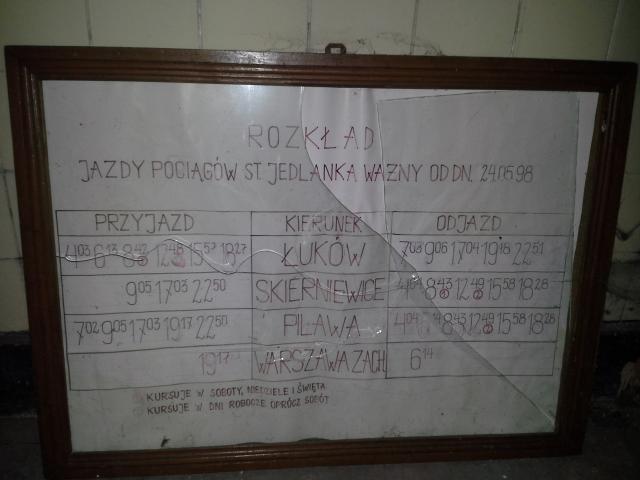 ROZKŁAD
JAZDY POCIĄGÓW ST. JEDLANKA WAŻNY OD DN. 24.05.98
PRZYJAZD KIERUNEK ODJAZD
4⁰³ 6¹³ 8⁴² 12⁴⁸ 15⁵⁷ 18²⁷ ŁUKÓW 7⁰³ 9⁰⁶ 17⁰⁴ 19¹⁸ 22⁵¹
9⁰⁵ 17⁰³ 22⁵⁰ SKIERNIEWICE 4⁰⁴ 8⁴³ 12⁴⁹ 15⁵⁸ 18²⁸
7⁰² 9⁰⁵ 17⁰³ 19¹⁷ 22⁵⁰ PILAWA 4⁰⁴ 8⁴³ 12⁴⁹ 15⁵⁸ 18²⁸
19¹⁷ WARSZAWA ZACH. 6¹⁴
① KURSUJE W SOBOTY, NIEDZIELE I ŚWIĘTA
② KURSUJE W DNI ROBOCZE OPRÓCZ SOBÓT